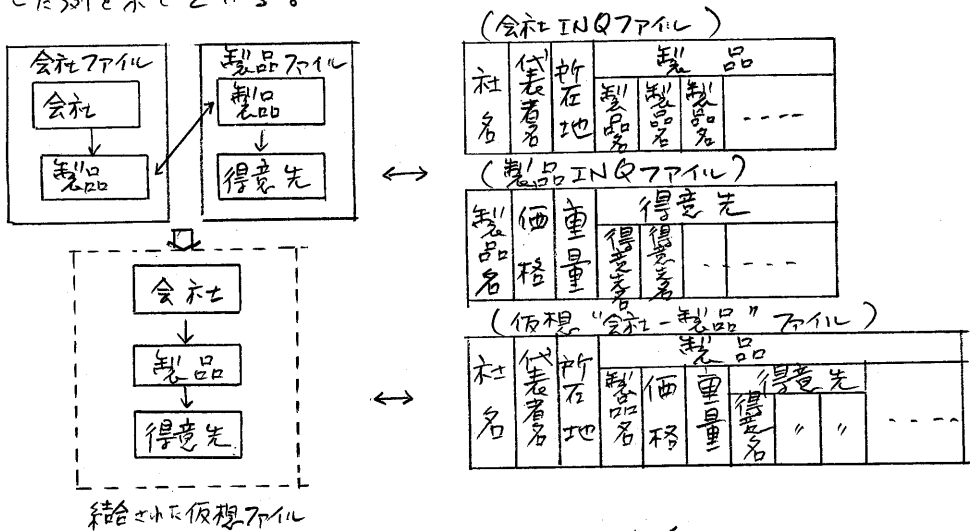 した例を示してある。
会社ファイル
会社
製品
製品ファイル
製品
得意先
会社
製品
得意先
結合された仮想ファイル
(会社INQファイル)
社名
代表者名
所在地
製品
製品名
製品名
製品名
----
(製品INQファイル)
製品名
価格
重量
得意先
得意先名
得意先名
-----
(仮想"会社-製品"ファイル)
社名
代表者名
所在地
製品
製品名
価格
重量
得意先
得意名
〃
〃
----